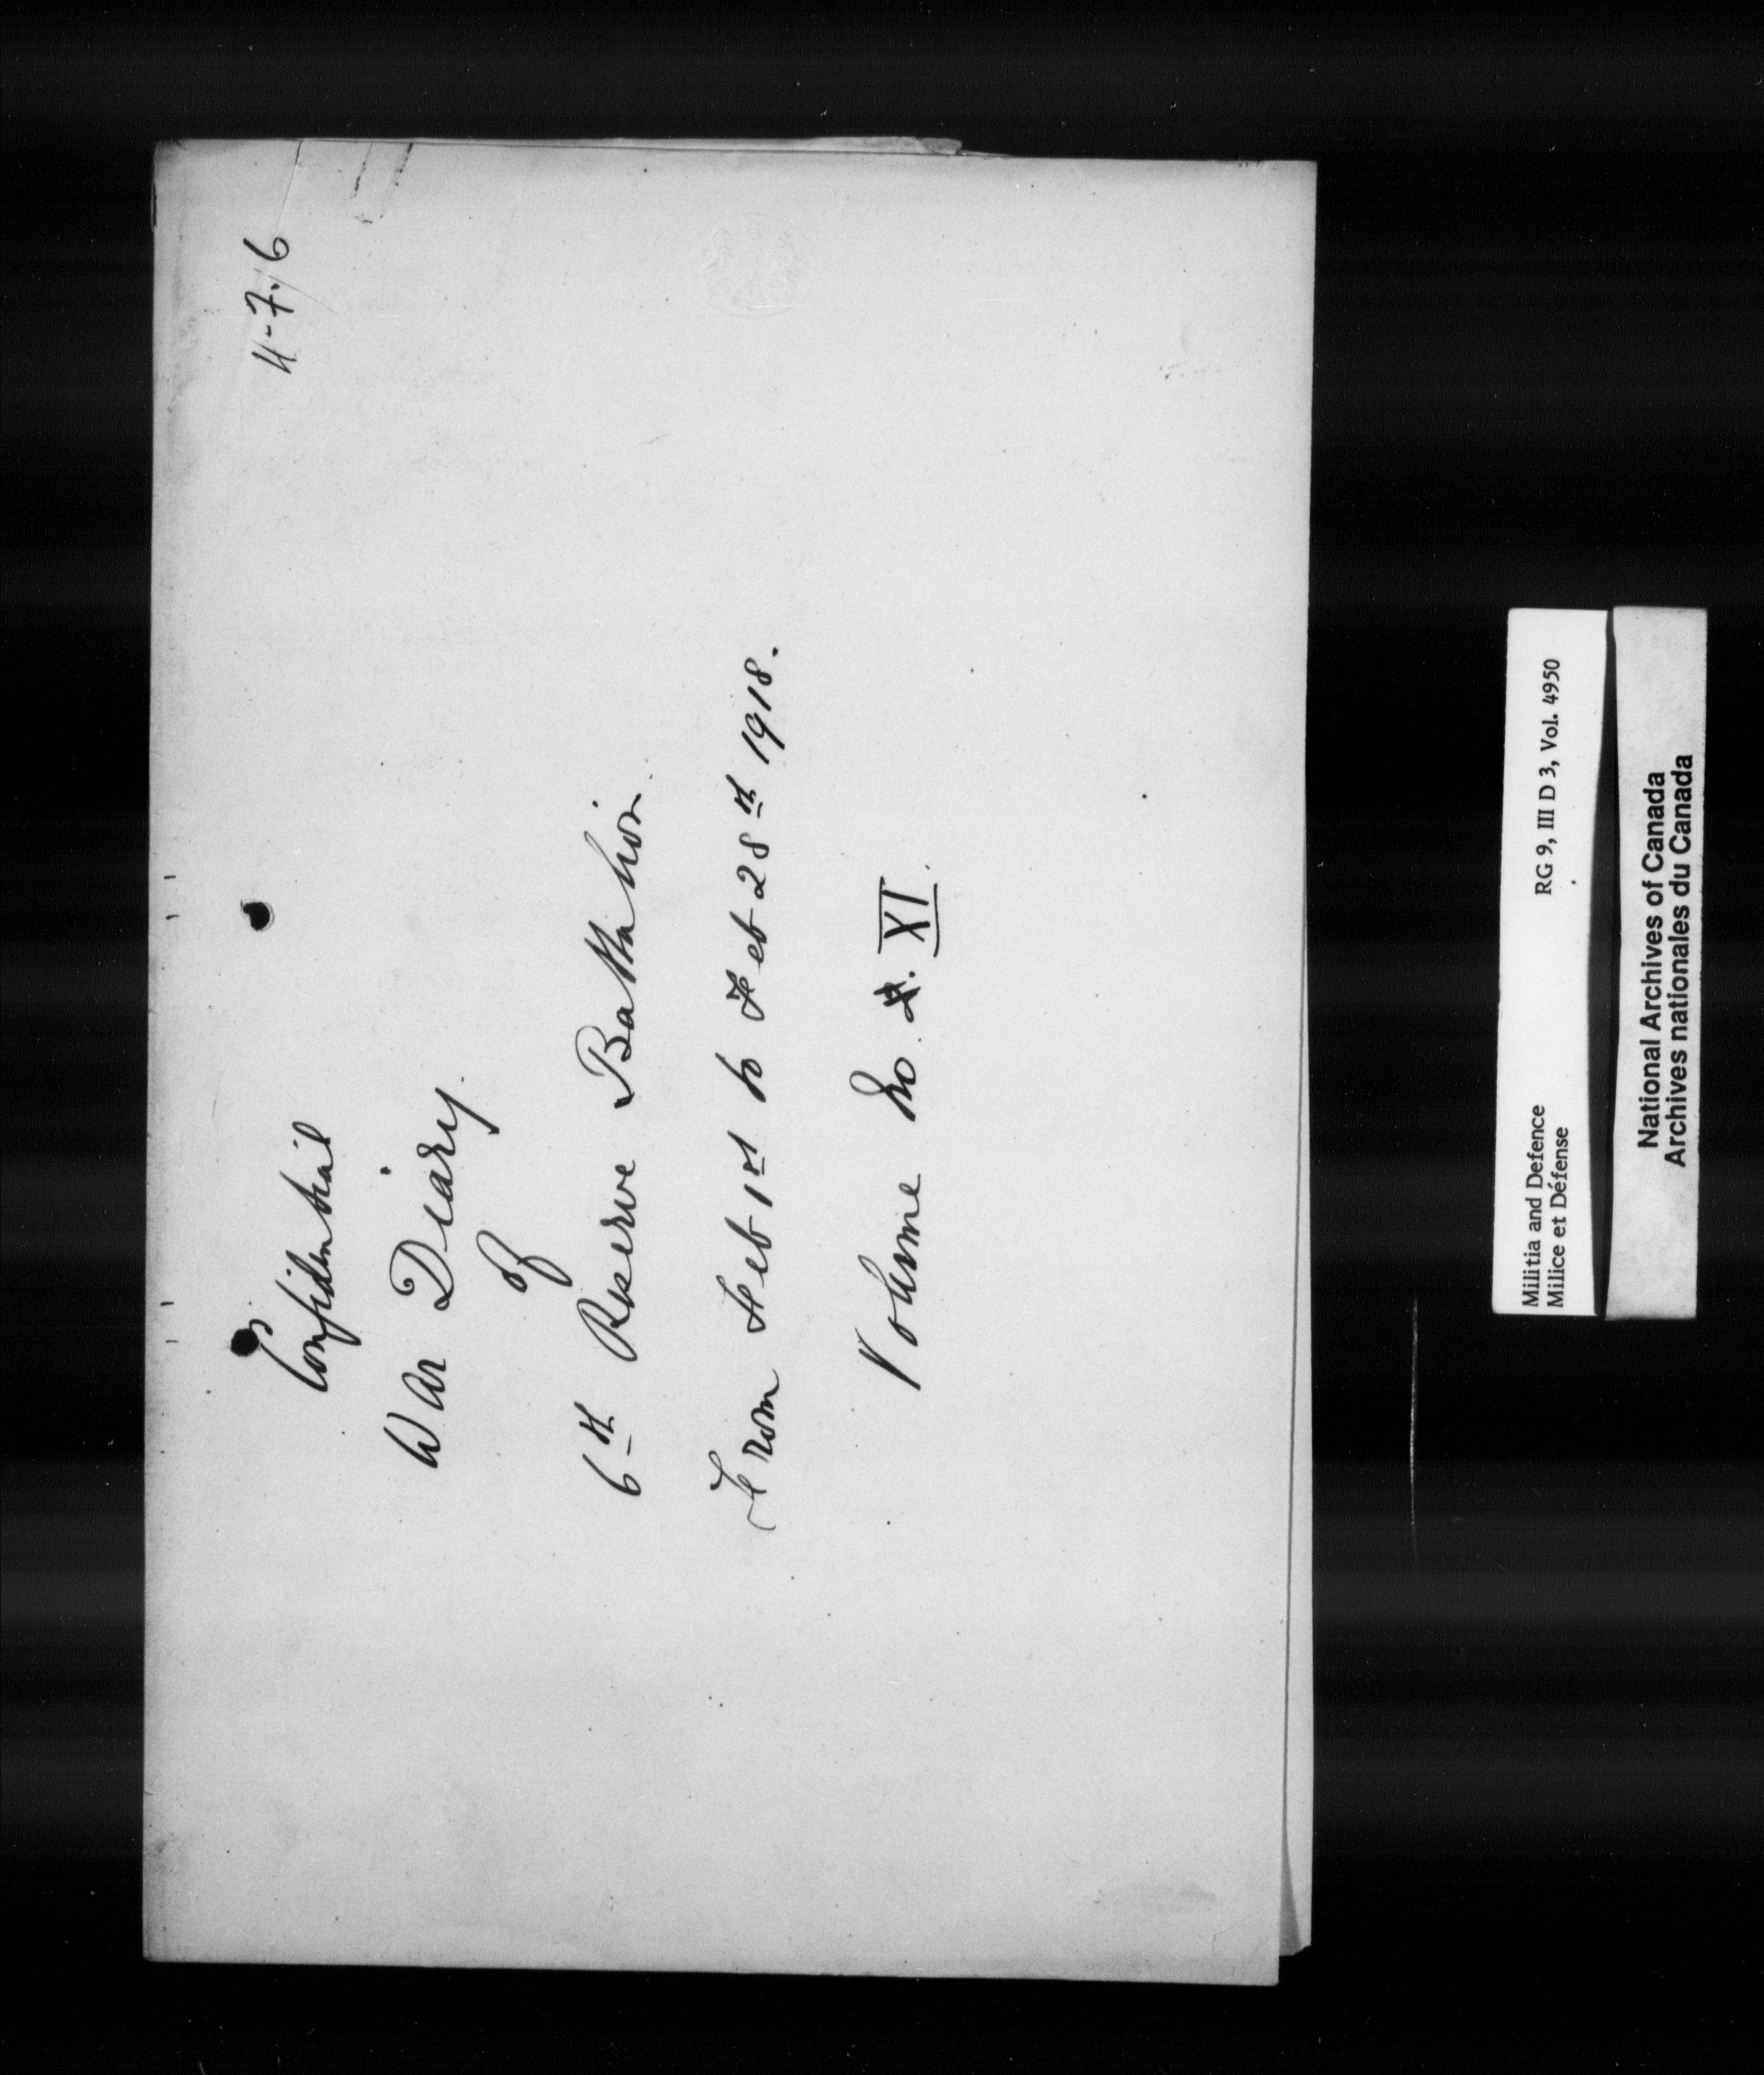 4-7.6
Confidential
War Diary.
of
6th Reserve Battalion.
From Feb 1st to Feb 28th 1918.
Volume No. XI.
Militia and Defence
Milice et Défense
RG 9, III D 3, Vol. 4950
National Archives of Canada
Archives nationales du Canada